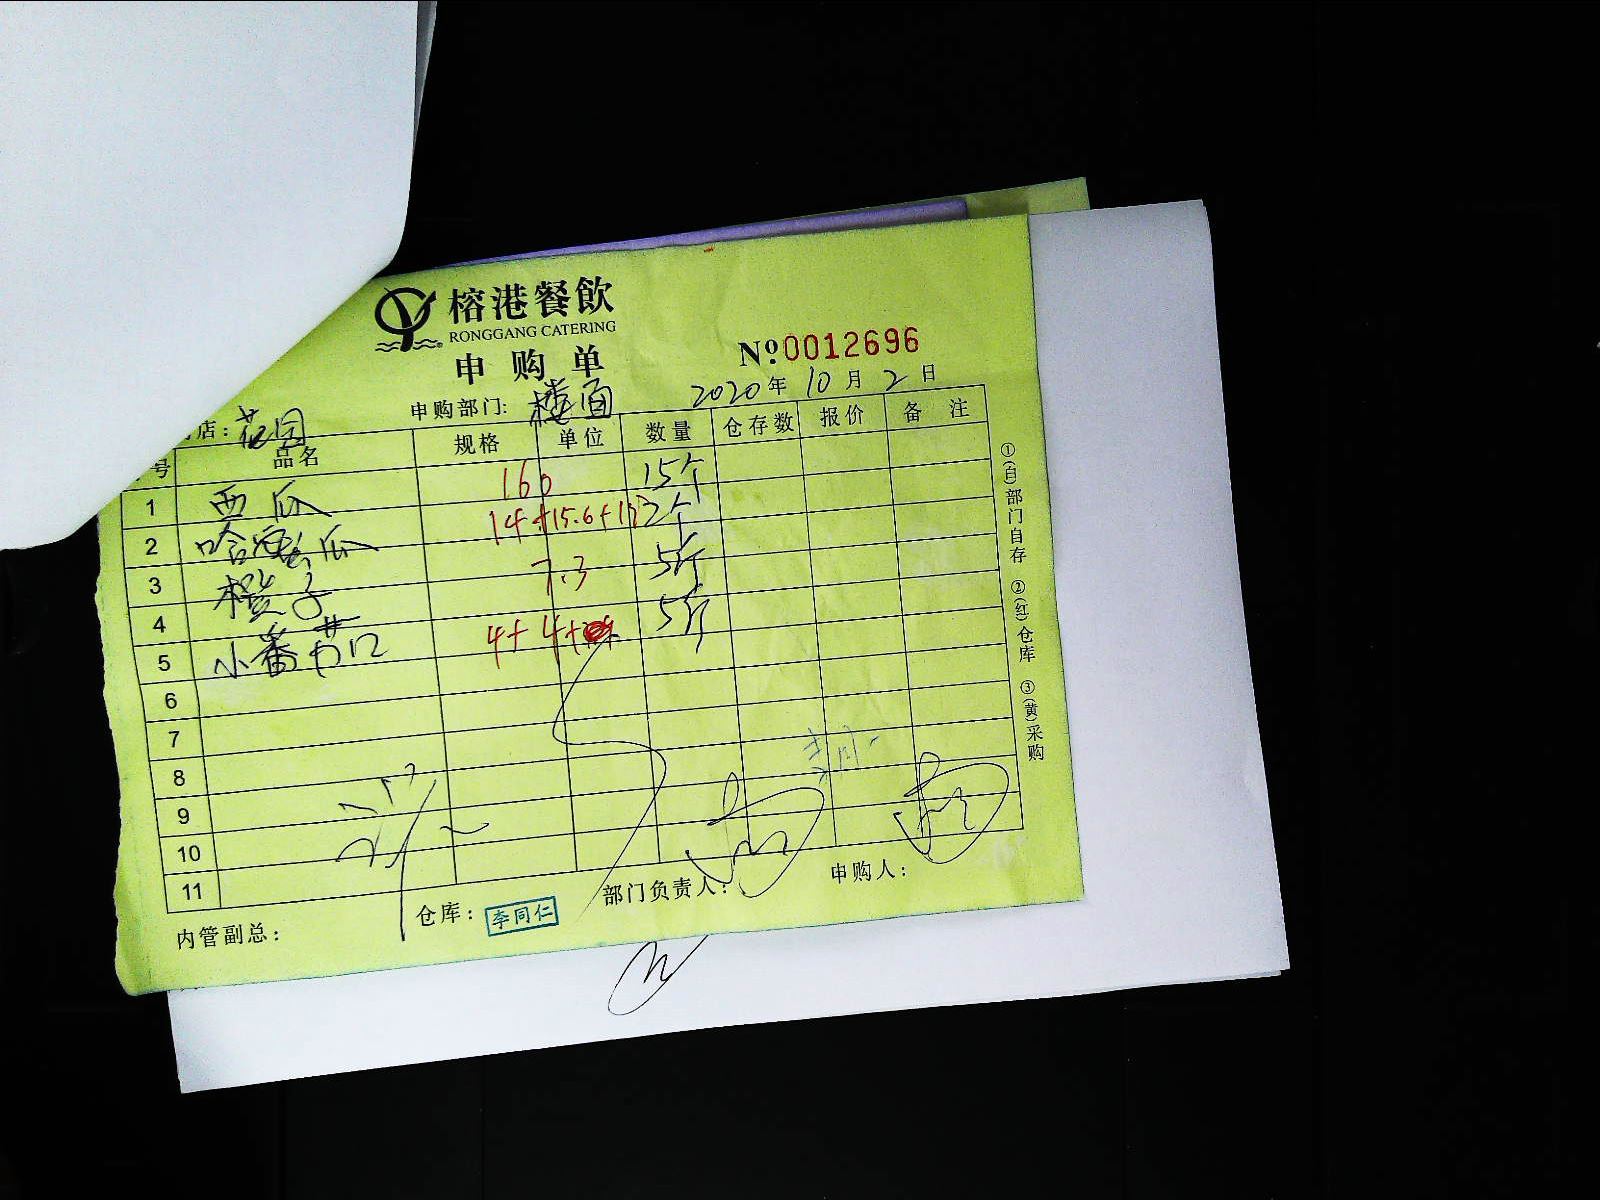 榕港餐飲
RONGGANG CATERING
申购单
№0012696
店:花园 申购部门:楼面 2020年10月2日
号 品名 规格 单位 数量 仓存数 报价 备注
1 西瓜 160 15个
2 哈密瓜 14+15.6+15 2个
3 橙子 7.3 5斤
4 小番茄 4+4+ 5斤
5
6
7
8
9
10
11
①(白)部门自存 ②(红)仓库 ③(黄)采购
内管副总: 仓库:李同仁 部门负责人: 申购人: